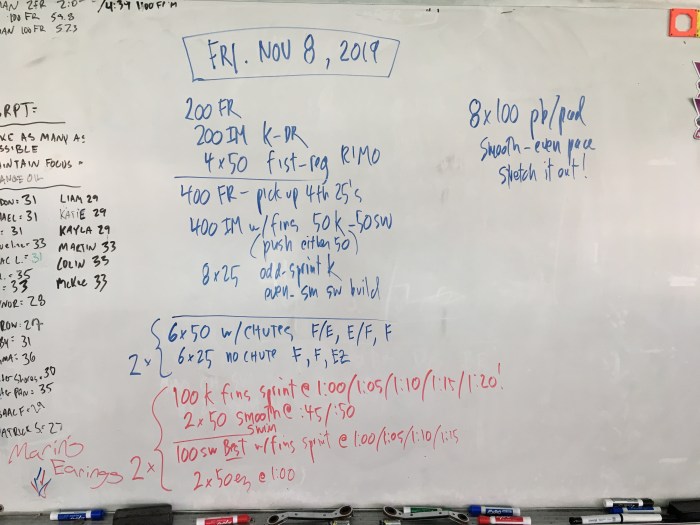 2FR 2:0
/4:39 1:00 FIM
100 FR 59.8
100 FR 523
FRI. NOV 8, 2019
RPT=
AS MANY AS
SSIBLE
NTAIN FOCUS
: 31 LIAM 29
: 31 KATIE 29
: 31 KAYLA 29
33 MARTIN 33
AC L.: 31 COLIN 33
.: 35 McKee 33
: 33
NOR: 28
ROW: 27
BY: 31
MA: 36
30
PAN: 35
ISAAC F: 29
ATRICK S: 27
Marin's
Earings
200 FR
200 IM K-DR
4x50 fist-reg RIMO
400 FR - pick up 4th 25's
400 IM w/fins 50k-50sw
(push either 50)
8x25 odd-sprint k
even-sm sw build
2x
6x50 w/CHUTES F/E, E/F, F
6x25 no CHUTE F, F, EZ
2x
100 k fins sprint @ 1:00/1:05/1:10/1:15/1:20!
2x50 smooth @ :45/:50
swim
100 sw Best w/fins sprint @ 1:00/1:05/1:10/1:15
2x50 ez @ 1:00
8x100 pb/pad
Smooth-even pace
Stretch it out!